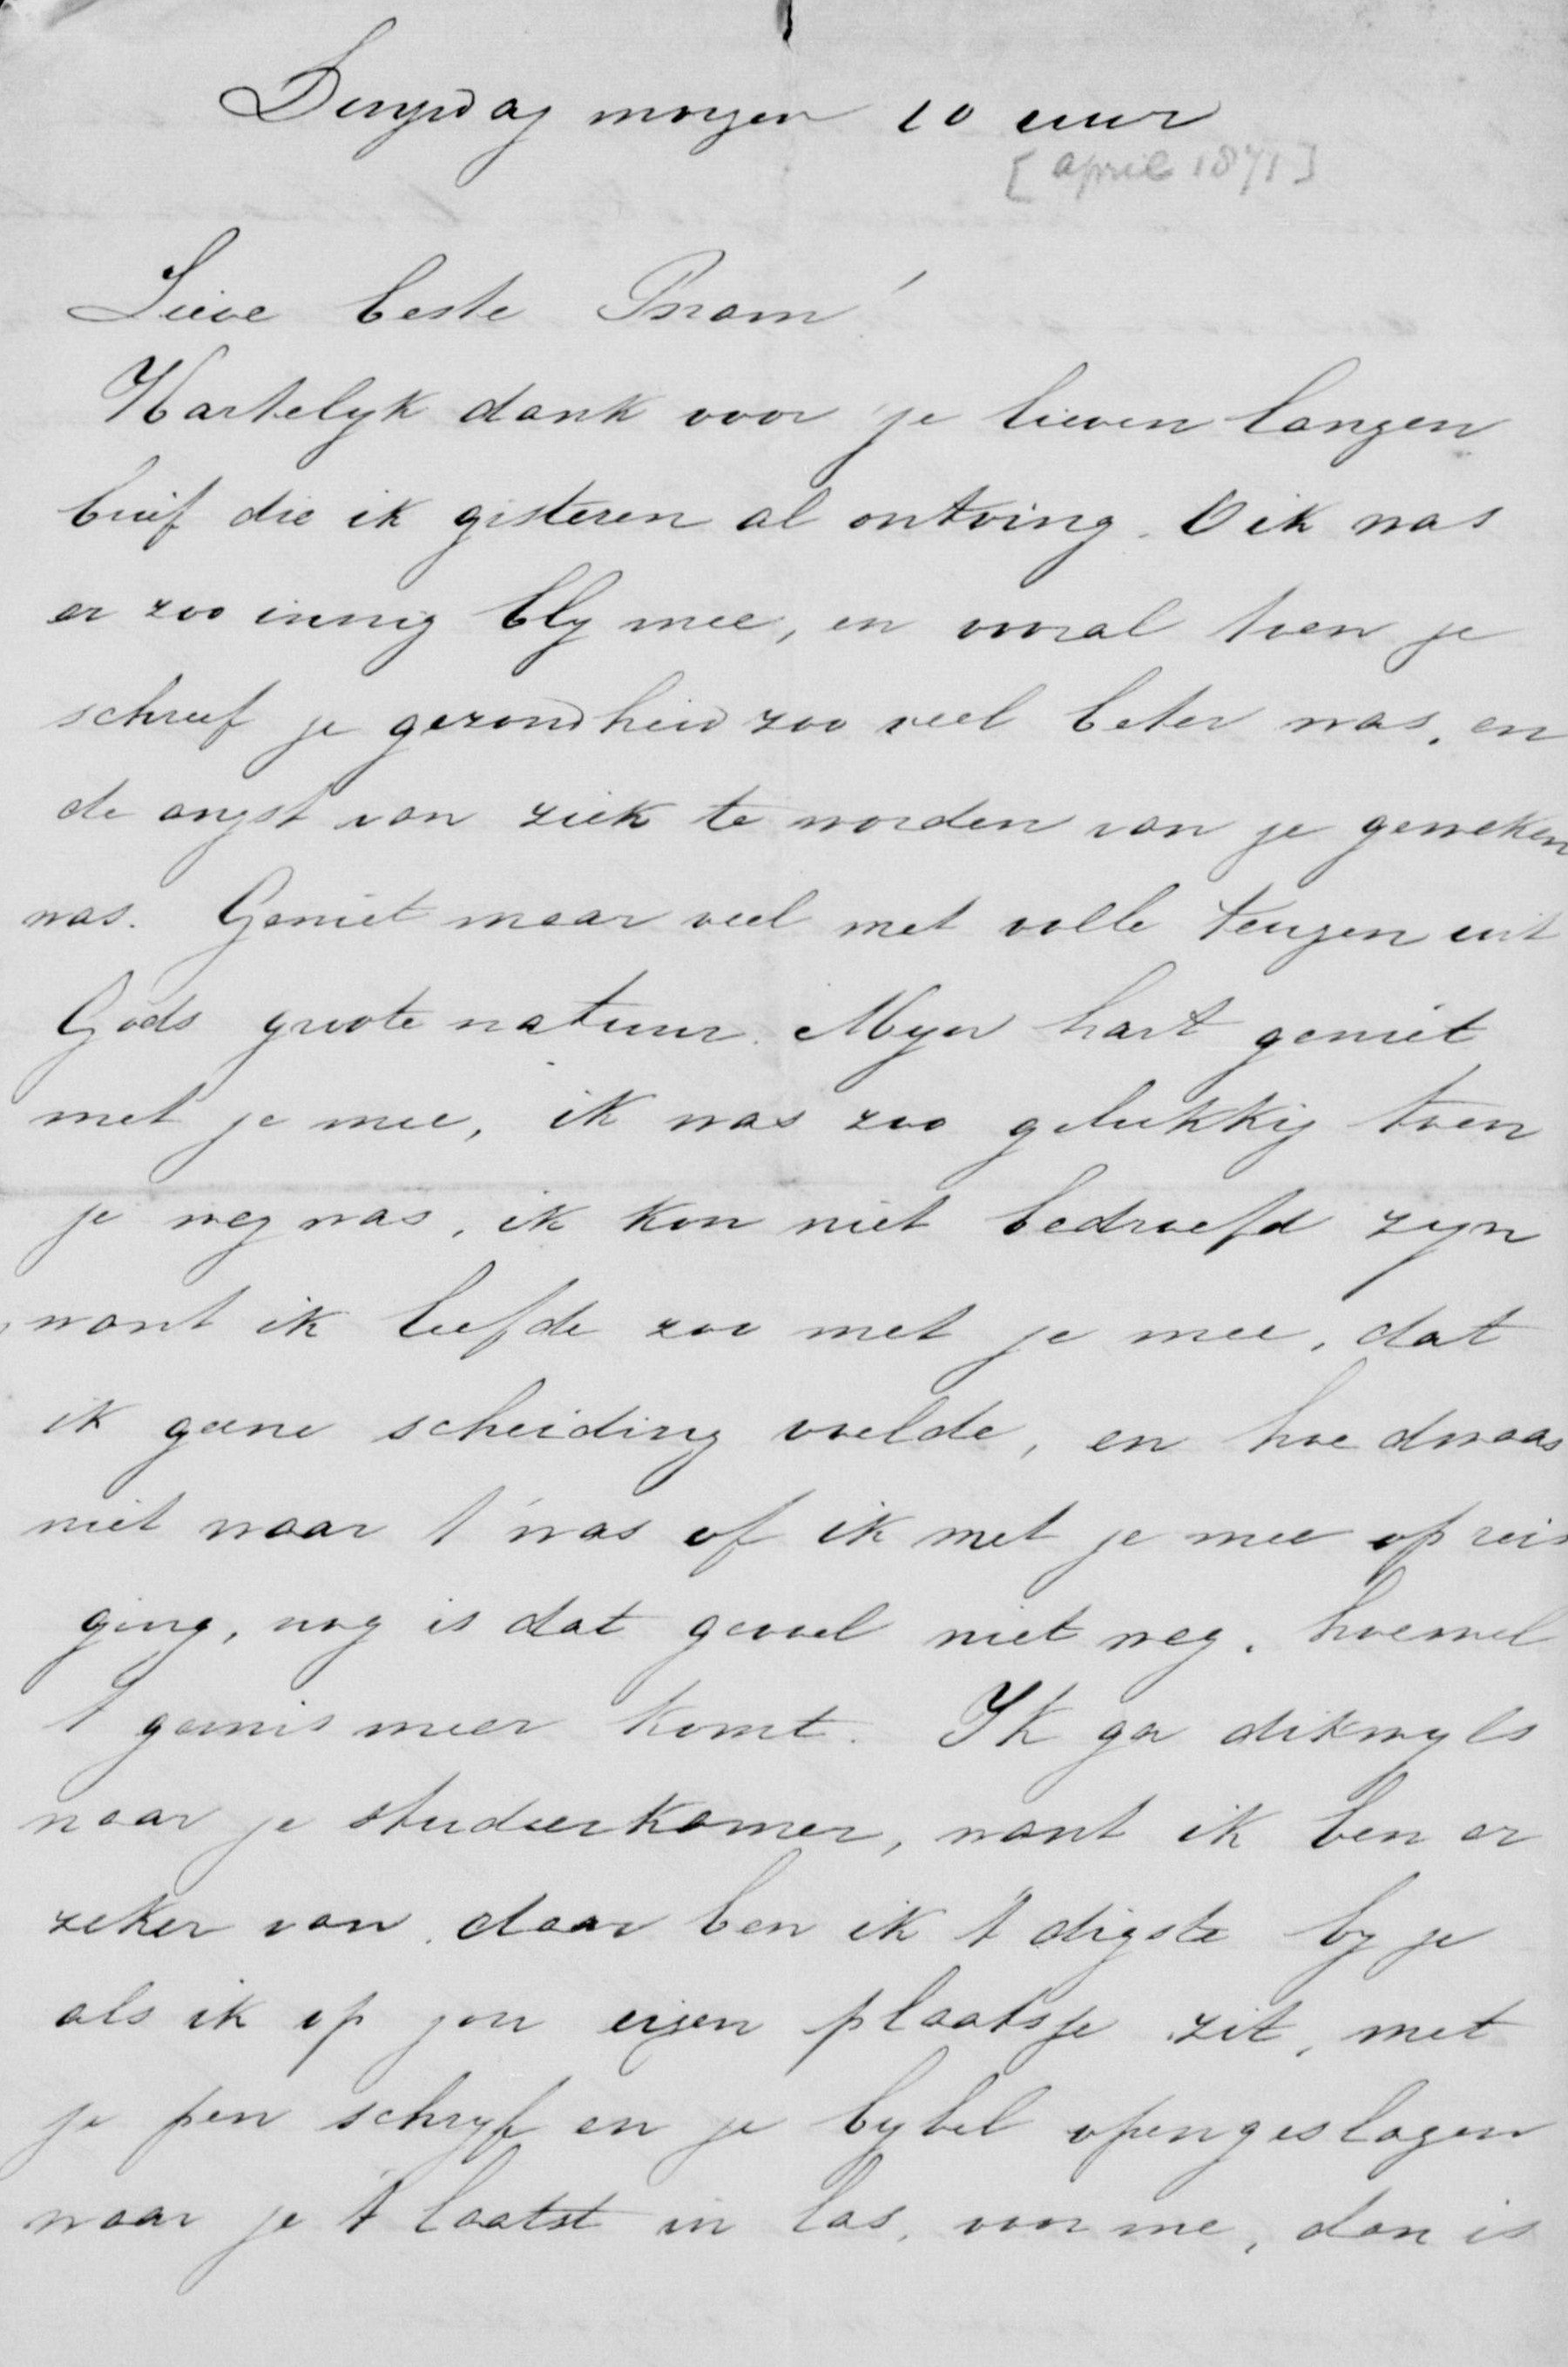 Dingsdag morgen 10 uur
[april 1871]
Lieve beste Bram!
Hartelyk dank voor je lieven langen
brief die ik gisteren al ontving. O ik was
er zoo innig bly mee, en vooral toen je
schreef je gezondheid zoo veel beter was, en
de angst van ziek te worden van je geweken
was. Geniet maar veel met volle teugen uit
Gods groote natuur. Myn hart geniet
met je mee, ik was zoo gelukkig toen
je weg was, ik kon niet bedroefd zyn
want ik leefde zoo met je mee, dat
ik geene scheiding voelde, en hoe dwaas
niet waar 't was of ik met je mee op reis
ging, nog is dat gevoel niet weg. hoewel
't gemis meer komt. Ik ga dikwyls
naar je studeerkamer, want ik ben er
zeker van, daar ben ik 't digste by je
als ik op jou eigen plaatsje zit, met
je pen schryf en je bybel opengeslagen
waar je 't laatst in las, voor me, dan is